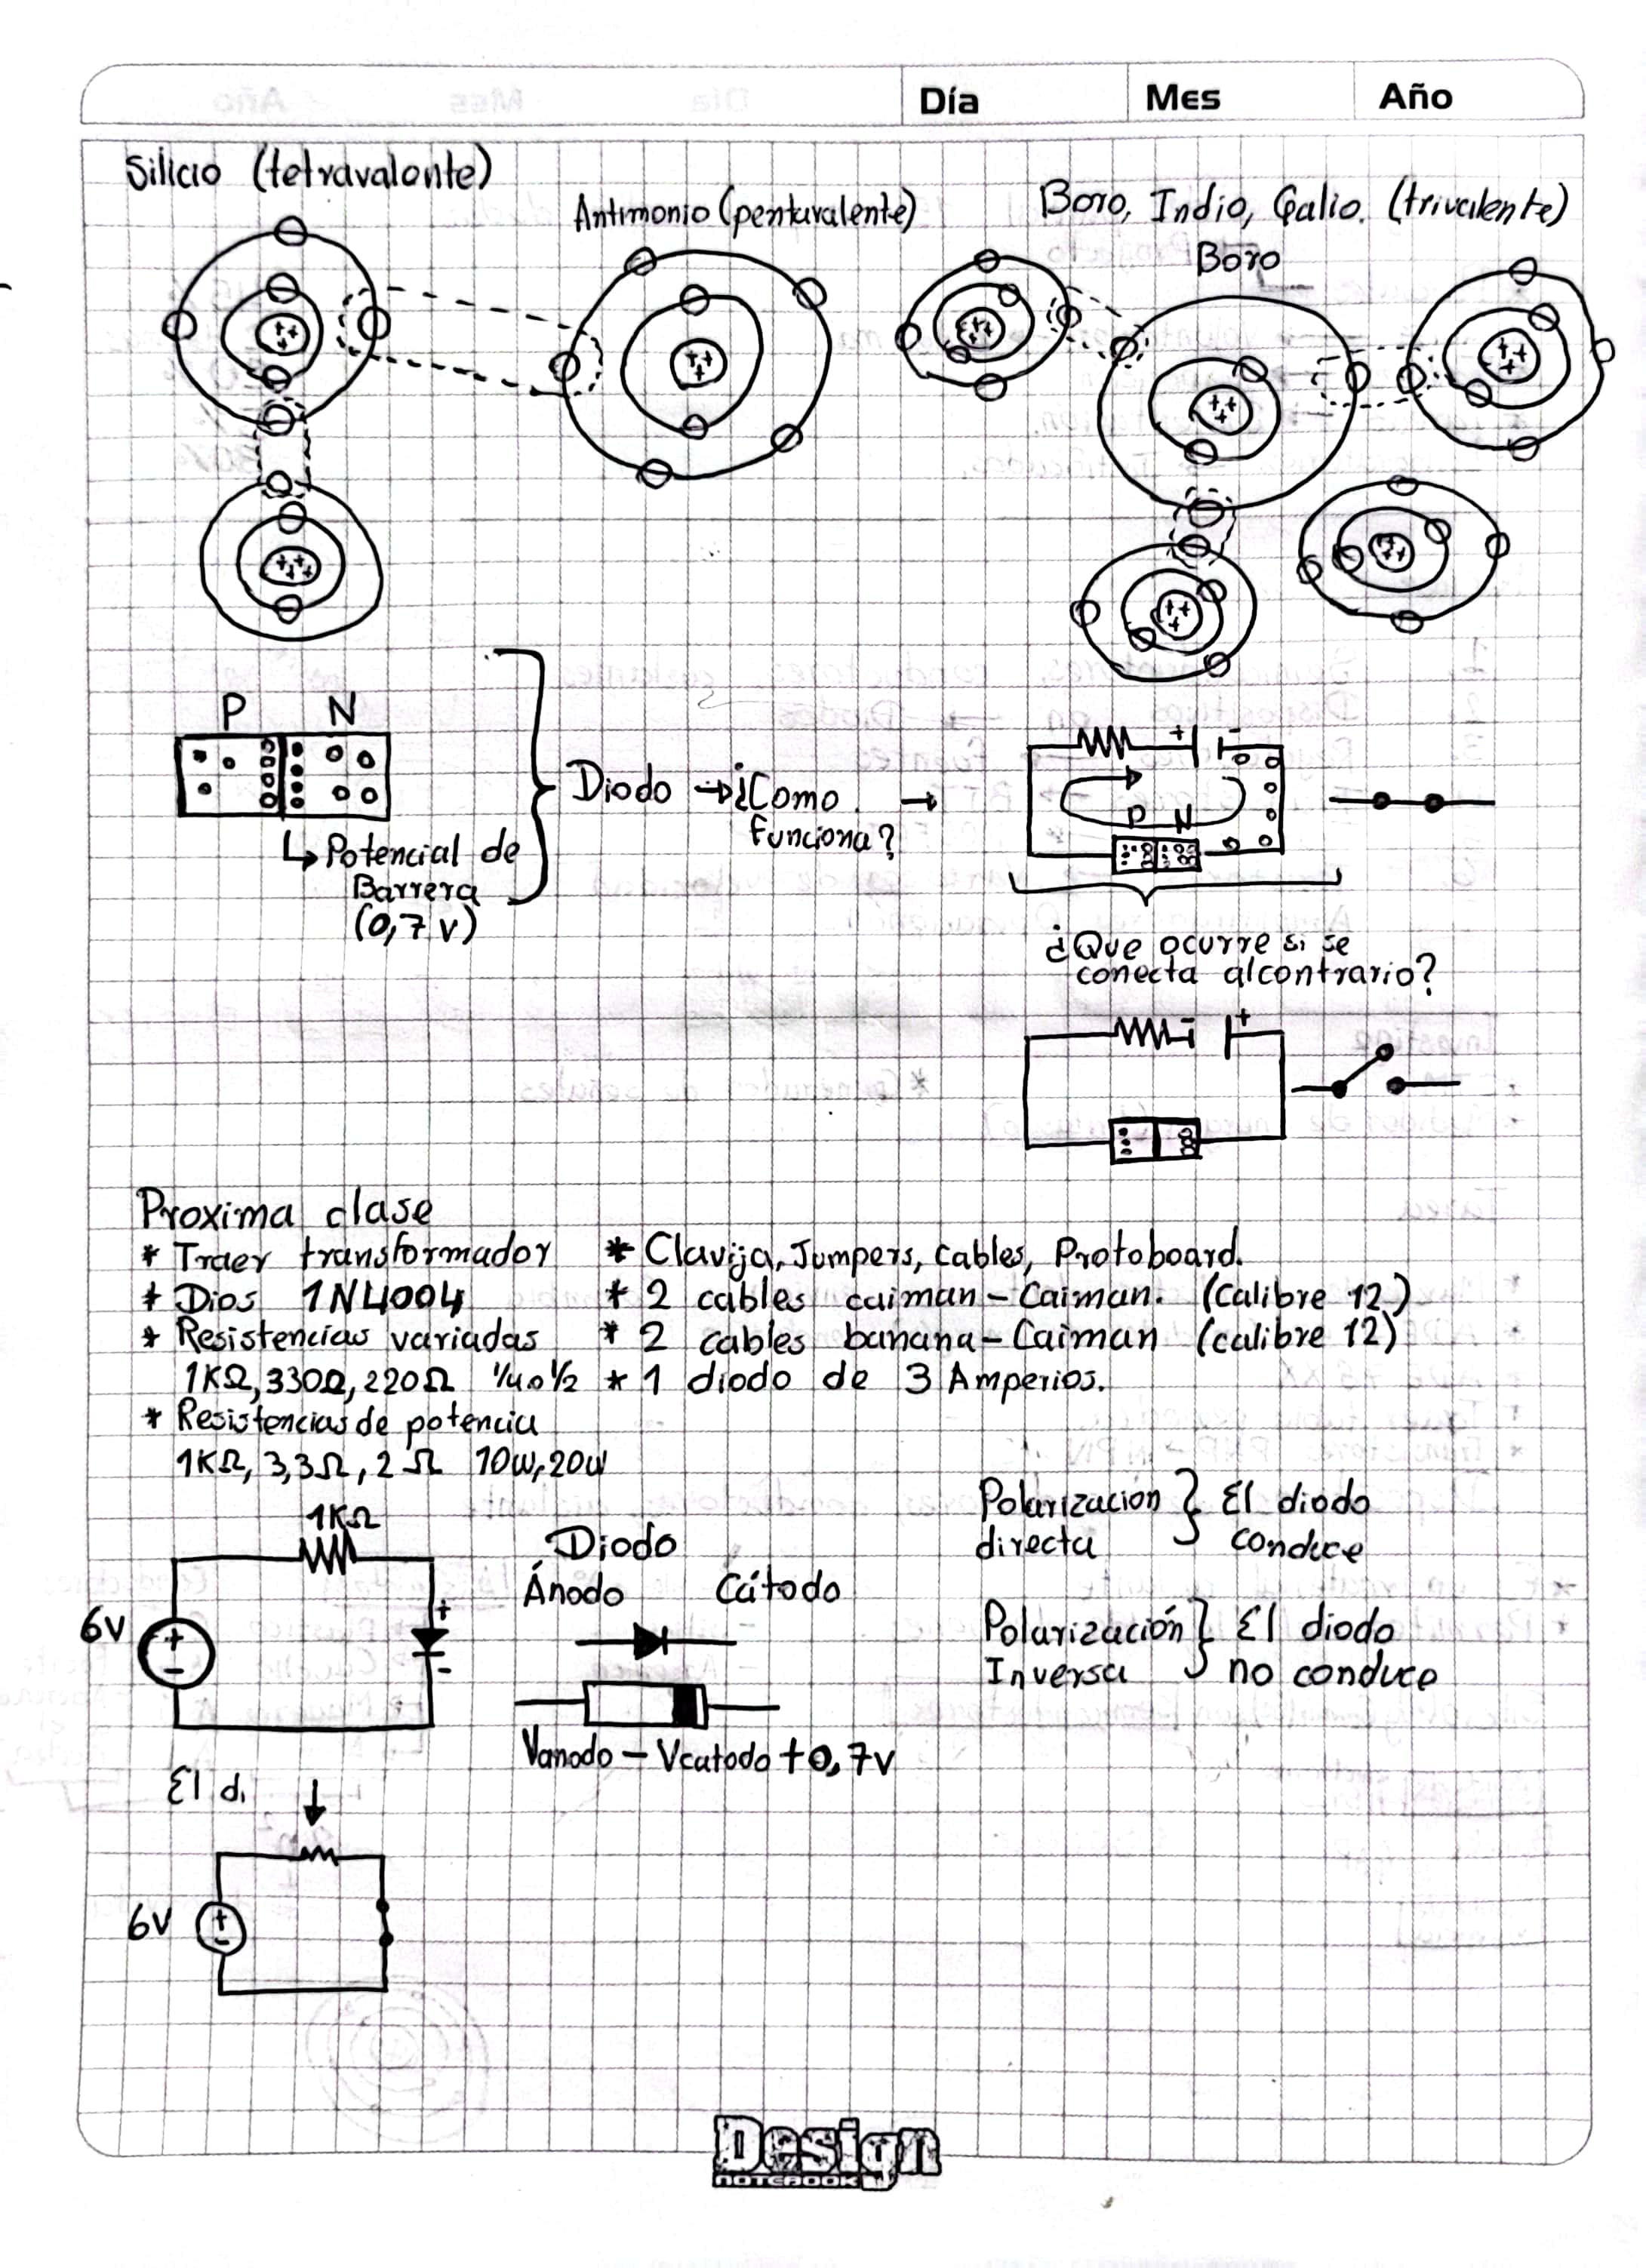 Día Mes Año
Silicio (tetravalente)
Antimonio (pentavalente)
Boro, Indio, Galio. (trivalente)
Boro
P N
↳ Potencial de
Barrera
(0,7 v)
Diodo → ¿Como
funciona? →
+ -
P N
¿Que ocurre si se
conecta alcontrario?
- +
Proxima clase
* Traer transformador
* Dios 1N4004
* Resistencias variadas
1KΩ, 330Ω, 220Ω 1/4 o 1/2
* Resistencias de potencia
1KΩ, 3,3Ω, 2Ω 10w, 20w
* Clavija, Jumpers, cables, Protoboard.
* 2 cables caiman - Caiman. (Calibre 12)
* 2 cables banana - Caiman (calibre 12)
* 1 diodo de 3 Amperios.
1KΩ
6V
+
-
+
-
Diodo
Ánodo Cátodo
Vanodo - Vcatodo + 0,7v
Polarizacion } El diodo
directa conduce
Polarización } El diodo
Inversa no conduce
El di
6V
+
-
Design
NOTEBOOK